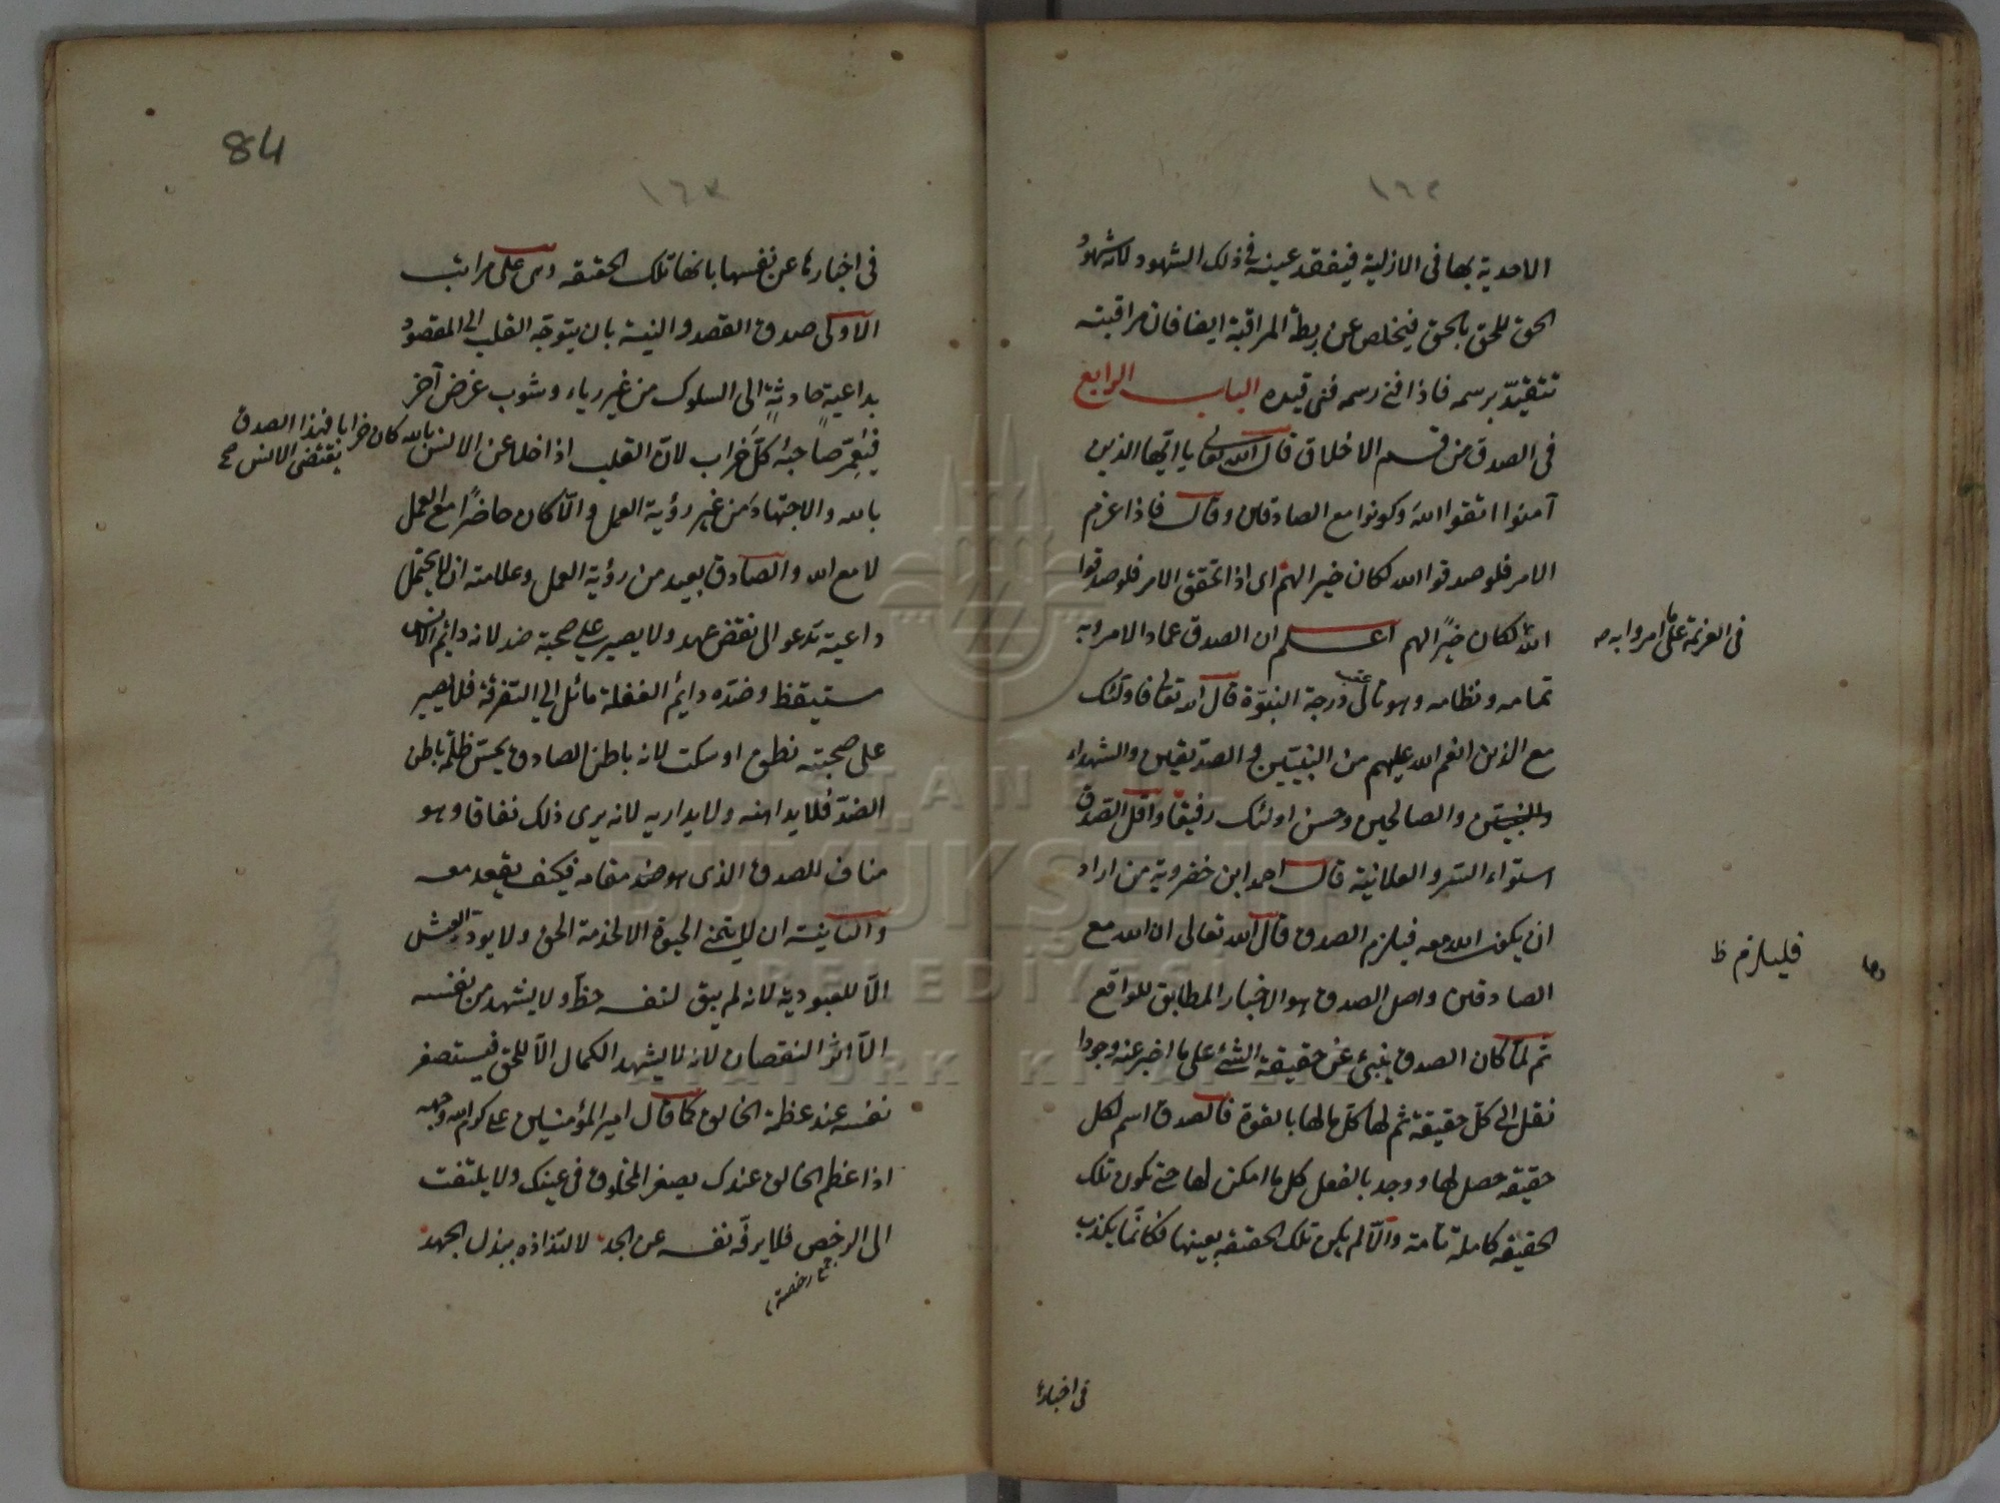 ١٦٢
الاحدية بها فى الازلية فيفقد عينه فى ذلك الشهود لانه شهود
الحق للحق بالحق فيخلص عن ربطة المراقبة ايضا فان مراقبته
تتقيد برسمه فاذا فنى رسمه فنى قيده الباب الرابع
فى الصدق من قسم الاخلاق قال الله تعالى يا ايها الذين
آمنوا اتقوا الله وكونوا مع الصادقين وقال فاذا عزم
الامر فلو صدقوا الله لكان خيرا لهم اى اذا تحقق الامر فلو صدقوا
الله لكان خيرًا لهم اعلم ان الصدق عماد الامر وبه
فى العزيمة على ما امروا به صه
تمامه ونظامه وهو تالى درجة النبوّة قال الله تعالى فاولئك
مع الذين انعم الله عليهم من النبيّين والصدّيقين والشهداء
والصالحين وحسن اولئك رفيقا واقل الصدق
استواء السر والعلانية قال احمد ابن خضروية من اراد
ان يكون الله معه فيلزم الصدق قال الله تعالى ان الله مع
فليلزم ظ
الصادقين واصل الصدق هو الاخبار المطابق للواقع
ثم لمّا كان الصدق ينبئ عن حقيقة الشئ على ما اخبر عنه وجودا
نقل الى كلّ حقيقة ثم لها كلّ ما لها بالقوة فالصدق اسم لكل
حقيقة حصل لها ووجد بالفعل كل ما امكن لها حتى تكون تلك
الحقيقة كاملة تامة والّا لم يكن تلك الحقيقة بعينها فكانّما يكذب
فى اخبارها
84
١٦٣
فى اخبارها عن نفسها بانها تلك الحقيقة وهى على مراتب
الاولى صدق القصد والنية بان يتوجّه القلب الى المقصود
بداعية حادثةٍ الى السلوك من غير رياء وشوب غرض آخر
فيعمّر صاحبه كلّ خراب لانّ القلب اذا خلا عن الانس بالله كان خرابا فهذا الصدق
يقتضى الانس صح
بالله والاجتهاد من غير رؤية العمل والّا كان حاضرًا مع العمل
لا مع الله والصادق بعيد من رؤية العمل وعلامته ان لا يحتمل
داعية تدعو الى نقض عهد ولا يصبر على صحبة ضد لانه دائم الانس
مستيقظ وضدّه دائم الغفلة مائل الى التفرقة فلا يصبر
على صحبته نطق او سكت لانه باطن الصادق يحسّ ظلمة باطن
الضدّ فلا يداهنه ولا يداريه لانه يرى ذلك نفاقا وهو
مناف للصدق الذى هو ضد مقامه فكيف يقعد معه
والثانية ان لا يتمنى الحيوة الا لخدمة الحق ولا يود العيش
الّا للعبودية لانه لم يبق لنفسه حظّ ولا يشهد من نفسه
الّا اثر النقصان لانه لا يشهد الكمال الّا للحق فيستصغر
نفسه عند عظمة الخالق كما قال امير المؤمنين على كرم الله وجهه
اذا عظم الخالق عندك يصغر المخلوق فى عينك ولا يلتفت
الى الرخص فلا يرفّه نفسه عن الجد لالتذاذه ببذل الجهد
جمع رخصة